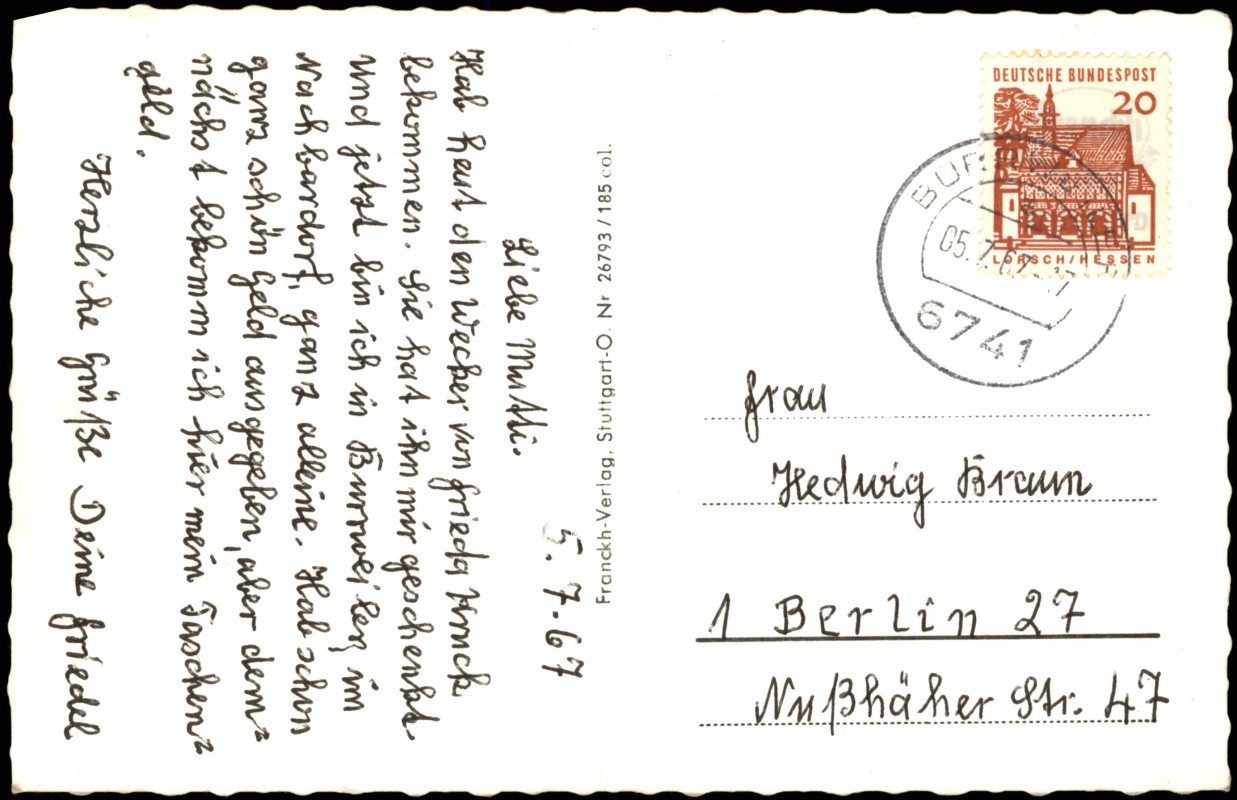 5.7.67
Liebe Mutti.
Hab heut den Wecker von Frieda
bekommen. Sie hat ihn mir geschenkt.
Und jetzt bin ich in Burrweiler, im
Nachbardorf, ganz alleine. Hab schon
ganz schön Geld ausgegeben, aber dem=
nächst bekomm ich hier mein Taschen=
geld.
Herzliche Grüße Deine Friedel
Franckh-Verlag, Stuttgart-O. Nr 26793/185 col.
DEUTSCHE BUNDESPOST
20
LORSCH/HESSEN
05.7.67
6741
Frau
Hedwig Braun
1 Berlin 27
Nußhäher Str. 47